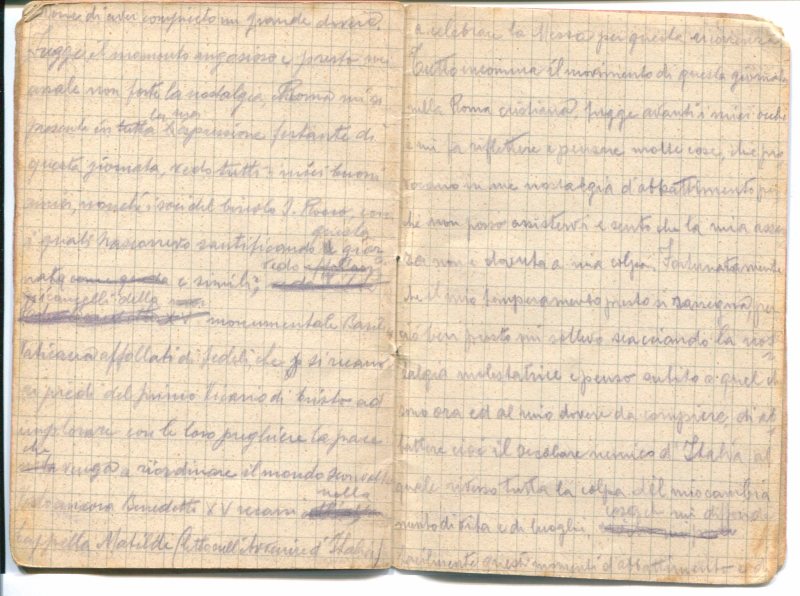 nome di aver compiuto un grande dovere.
Fugge il momento angoscioso e presto mi
assale non forte la nostalgia. Roma mi si
presenta in tutta la sua espressione festante di
questa giornata, vedo tutti i miei buoni
amici, nonché i soci del Circolo S. Rocco, con
i quali trascorrevo santificando questa gior
nata e simili; vedo
i cancelli della monumentale Basilica
Vaticana affollati di fedeli che si recano
ai piedi del primo Vicario di Cristo ad
implorare con le loro preghiere la pace
che venga a riordinare il mondo sconvolto
vedo ancora Benedetto XV recarsi nella
Cappella Matilde (letto nell'Avvenire d'Italia)
a celebrare la Messa per questa ricorrenza
Tutto insomma il movimento di questa giornata
nella Roma cristiana, fugge avanti i miei occhi
e mi fa riflettere e pensare molte cose, che pro
vocano in me nostalgia d'abbattimento per
ché non posso assistervi e sento che la mia assen
za non è dovuta a mia colpa. Fortunatamente
che il mio temperamento presto si rassegna per
ciò ben presto mi sollevo scacciando la nos
talgia molestatrice e penso subito a quel che
sono ora ed al mio dovere da compiere, di ab
battere cioè il secolare nemico d'Italia al
quale riverso tutta la colpa del mio cambia
mento di vita e di luoghi
facilmente questi momenti d'abbattimento